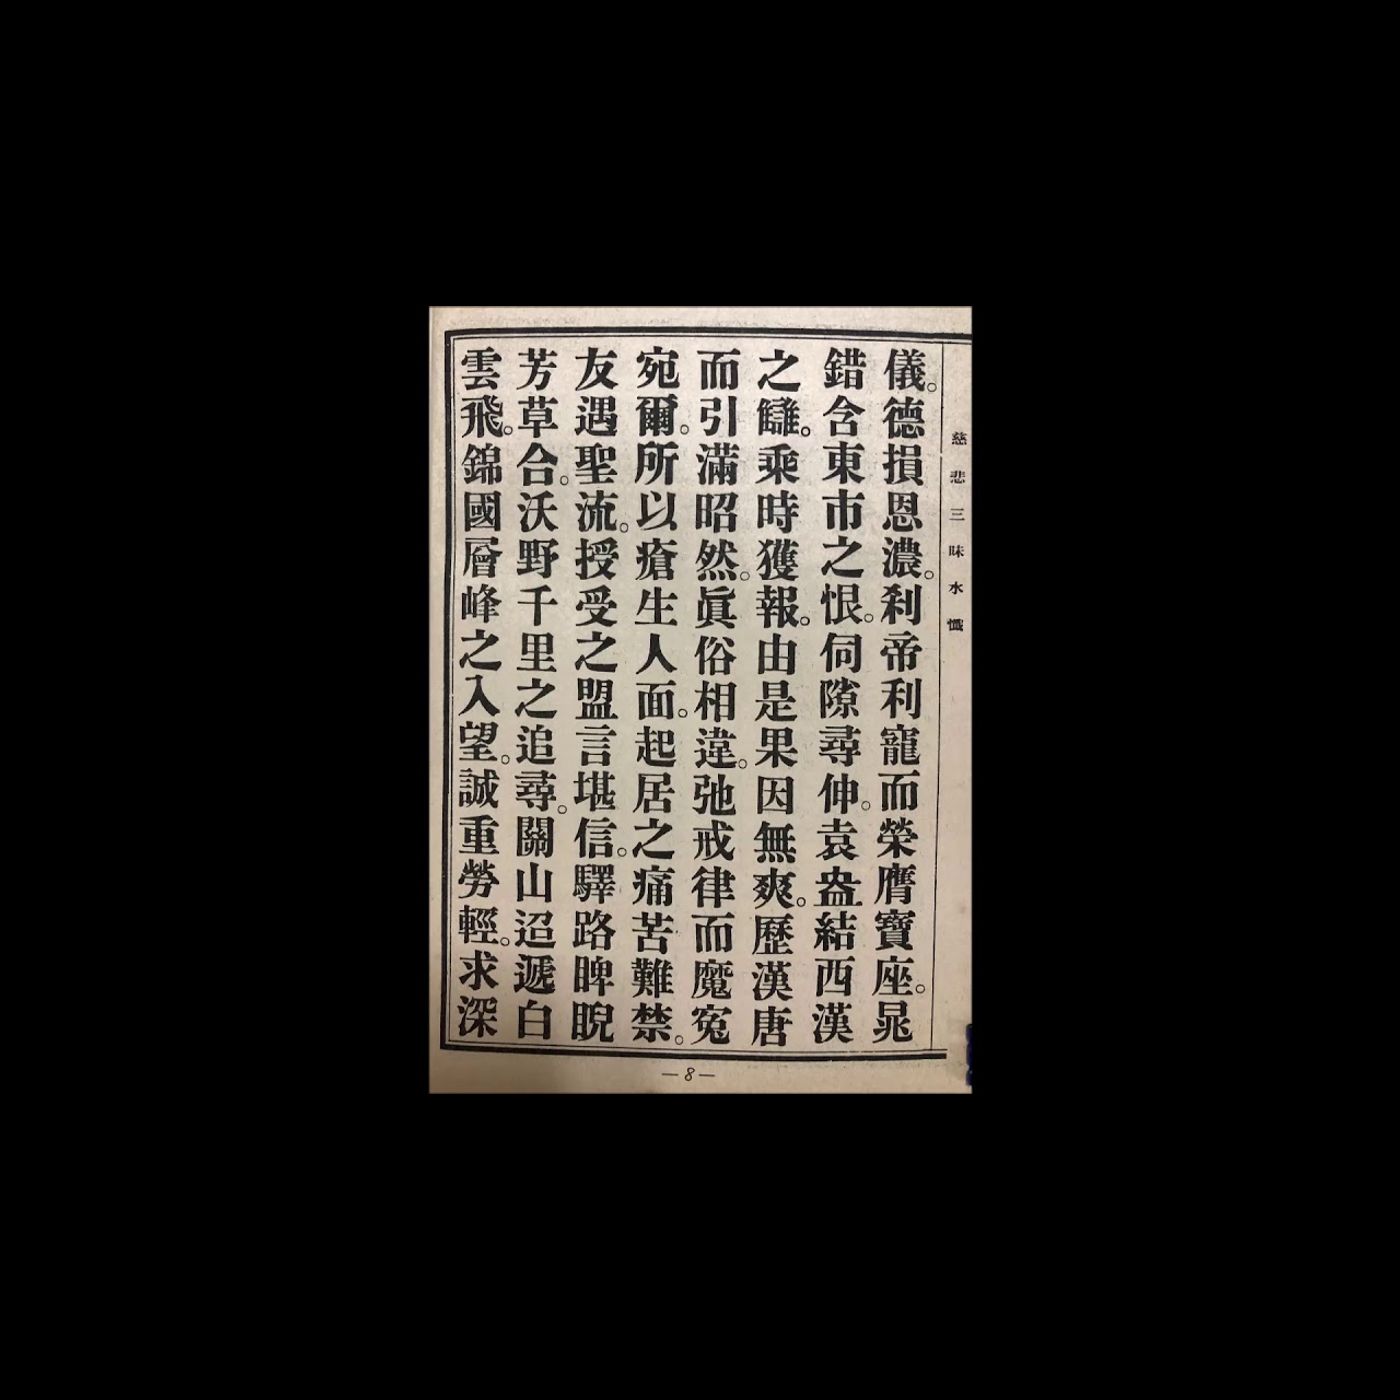 慈悲三昧水懺
儀。德損恩濃。利帝利寵而榮膺寶座。晁
錯含東市之恨。伺隙尋伸。袁盎結西漢
之讎。乘時獲報。由是果因無爽。歷漢唐
而引滿昭然。眞俗相違。弛戒律而魔寃
宛爾。所以瘡生人面。起居之痛苦難禁。
友遇聖流。授受之盟言堪信。驛路睥睨
芳草合。沃野千里之追尋。關山迢遞白
雲飛。錦國層峰之入望。誠重勞輕。求深
—8—